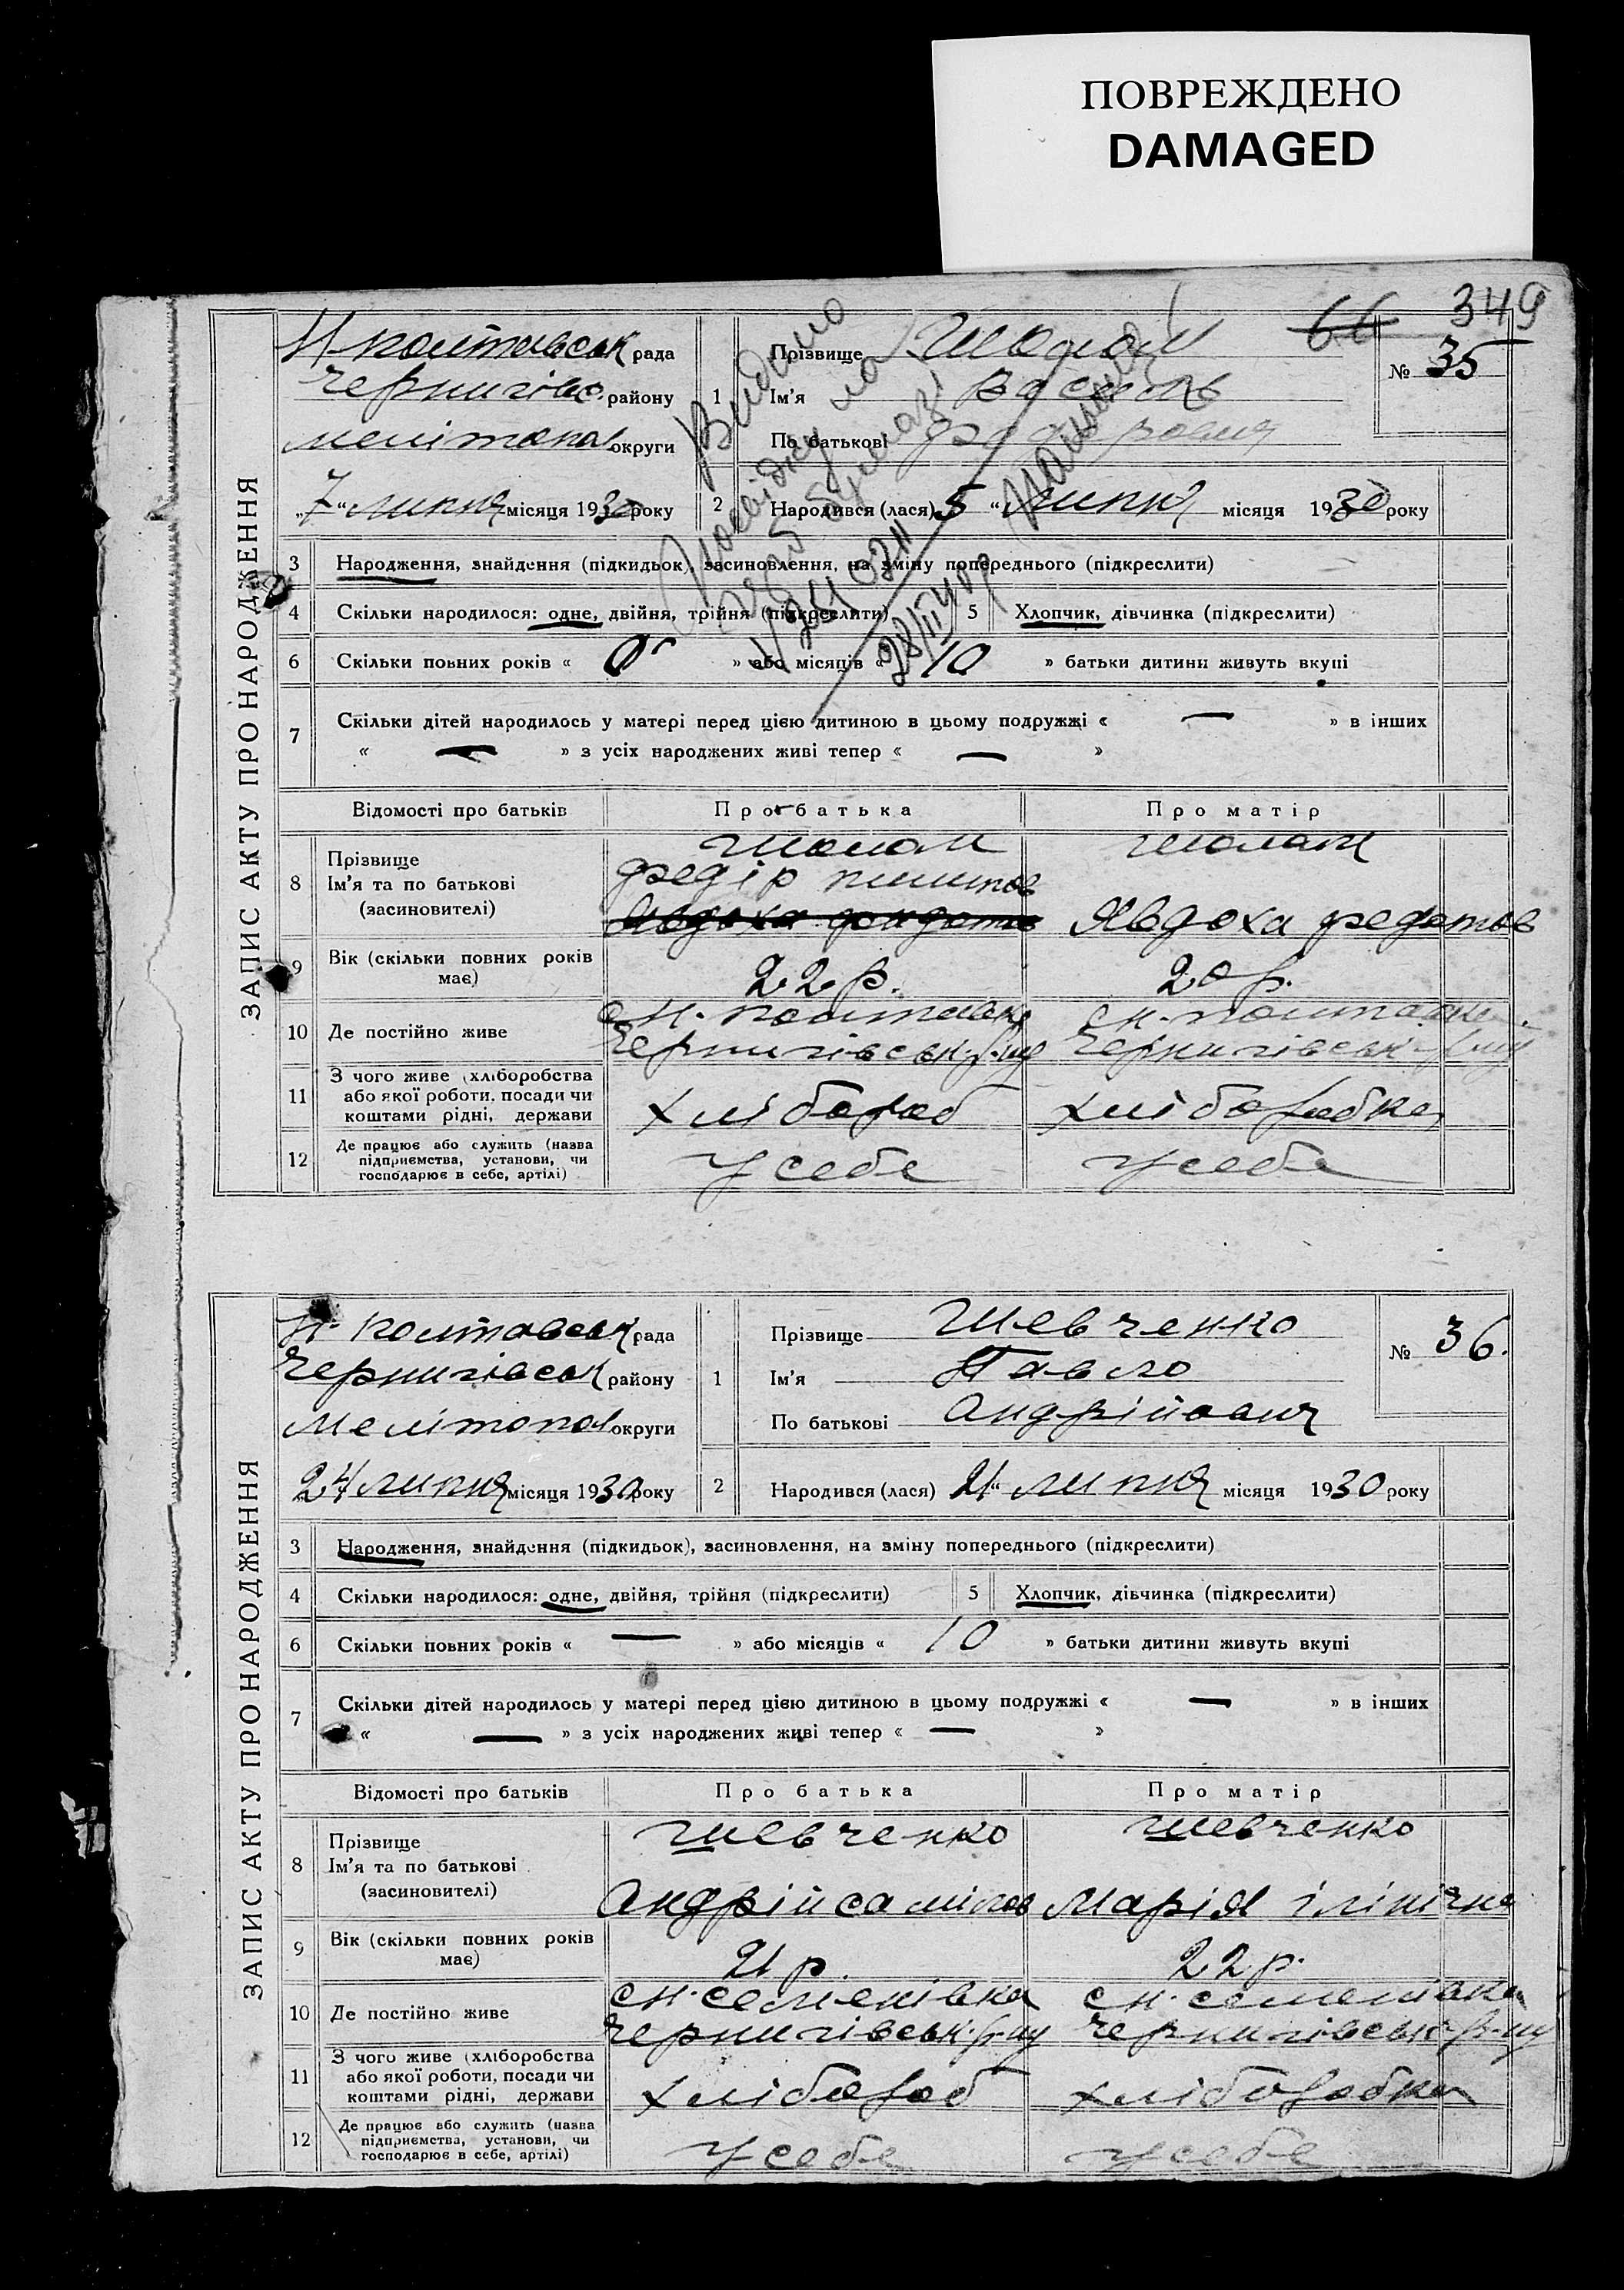 ПОВРЕЖДЕНО
DAMAGED
66 349
ЗАПИС АКТУ ПРО НАРОДЖЕННЯ
Н-полтавськ рада
Чернигівс. району
Мелітопол округи
„7“ липня місяця 1930 року
1
Прізвище
Ім'я Василь
По батькові Федорович
№ 35
2 Народився (лася) 5 “ липня місяця 1930 року
Видано
28/IV
3 Народження, знайдення (підкидьок), засиновлення, на зміну попереднього (підкреслити)
4 Скільки народилося: одне, двійня, трійня (підкреслити) 5 Хлопчик, дівчинка (підкреслити)
6 Скільки повних років « » або місяців « 10 » батьки дитини живуть вкупі
7 Скільки дітей народилось у матері перед цією дитиною в цьому подружжі « — » в інших
« — » з усіх народжених живі тепер « — »
Відомості про батьків Про батька Про матір
8 Прізвище
Ім'я та по батькові Федір
(засиновителі) Явдоха Федотов
9 Вік (скільки повних років має) 22 р. 20 р.
10 Де постійно живе с Н-полтавка с Н-полтавка
Чернигівськ. р-ну Чернигівськ. р-ну
11 З чого живе (хліборобства
або якої роботи, посади чи
коштами рідні, держави хлібороб хлібо робка
12 Де працює або служить (назва
підприємства, установи, чи
господарює в себе, артілі) у себе у себе
ЗАПИС АКТУ ПРО НАРОДЖЕННЯ
Н-полтавськ рада
Чернигівськ району
Мелітопол округи
24 липня місяця 1930 року
1
Прізвище Шевченко
Ім'я Павло
По батькові Андрійович
№ 36.
2 Народився (лася) 21 “ липня місяця 1930 року
3 Народження, знайдення (підкидьок), засиновлення, на зміну попереднього (підкреслити)
4 Скільки народилося: одне, двійня, трійня (підкреслити) 5 Хлопчик, дівчинка (підкреслити)
6 Скільки повних років « — » або місяців « 10 » батьки дитини живуть вкупі
7 Скільки дітей народилось у матері перед цією дитиною в цьому подружжі « — » в інших
« — » з усіх народжених живі тепер « — »
Відомості про батьків Про батька Про матір
8 Прізвище Шевченко Шевченко
Ім'я та по батькові
(засиновителі) Андрій Марія ілінічна
9 Вік (скільки повних років має) 21 р. 22 р.
10 Де постійно живе с Н. семенівка с Н. семенівка
Чернигівськ. р-ну Чернигівськ. р-ну
11 З чого живе (хліборобства
або якої роботи, посади чи
коштами рідні, держави хлібороб хліборобка
12 Де працює або служить (назва
підприємства, установи, чи
господарює в себе, артілі) у себе у себе